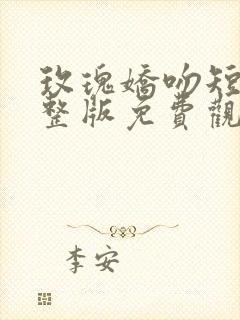 玫瑰嬌吻短
整版免費觀
李安